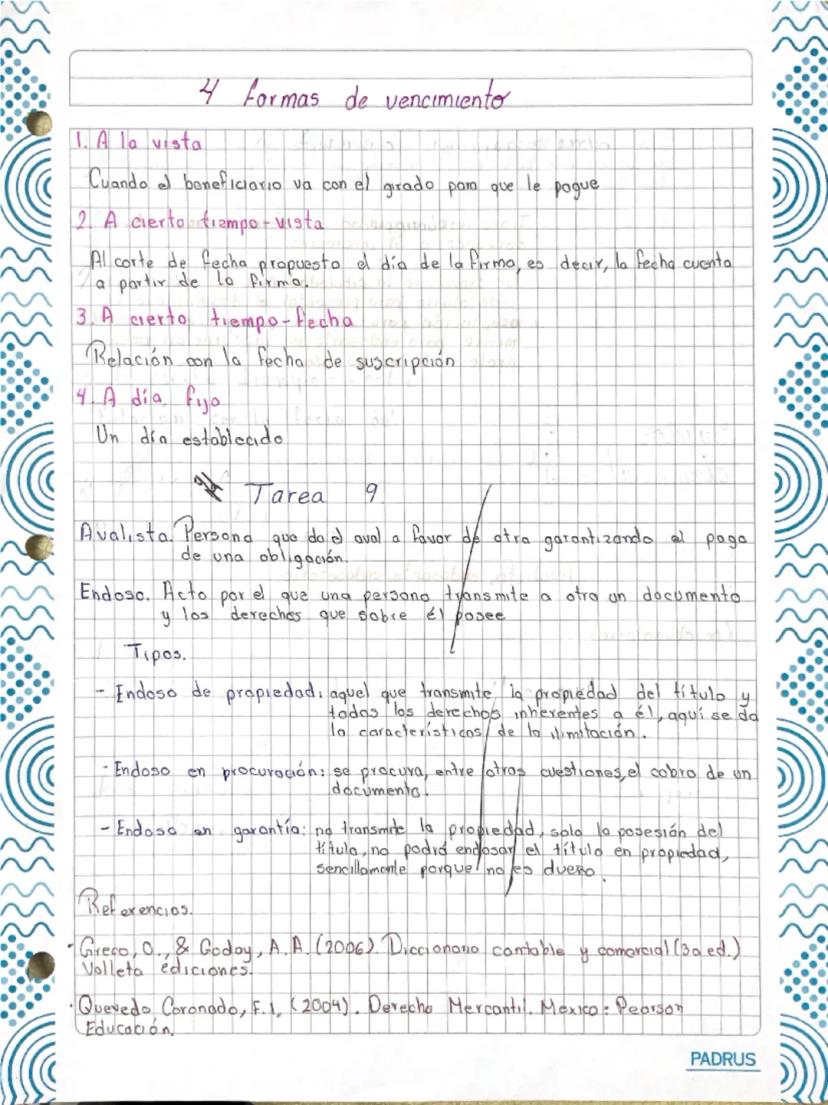 4 formas de vencimiento
1. A la vista
Cuando el beneficiario va con el girado para que le pague
2. A cierto tiempo-vista
Al corte de fecha propuesto el día de la firma, es decir, la fecha cuenta
a partir de la firma.
3. A cierto tiempo-fecha
Relación con la fecha de suscripción
4. A día fijo
Un día establecido
Tarea 9
Avalista. Persona que da el aval a favor de otra garantizando el pago
de una obligación.
Endoso. Acto por el que una persona transmite a otra un documento
y los derechos que sobre él posee
Tipos.
- Endoso de propiedad: aquel que transmite la propiedad del título y
todos los derechos inherentes a él, aquí se da
la características de la ilimitación.
- Endoso en procuración: se procura, entre otras cuestiones, el cobro de un
documento.
- Endoso en garantía: no transmite la propiedad, solo la posesión del
título, no podrá endosar el título en propiedad,
sencillamente porque no es dueño.
Referencias.
· Greco, O., & Godoy, A. A. (2006). Diccionario contable y comercial (3a ed.)
Valletta ediciones.
· Quevedo Coronado, F. I. (2004). Derecho Mercantil. México: Pearson
Educación.
PADRUS